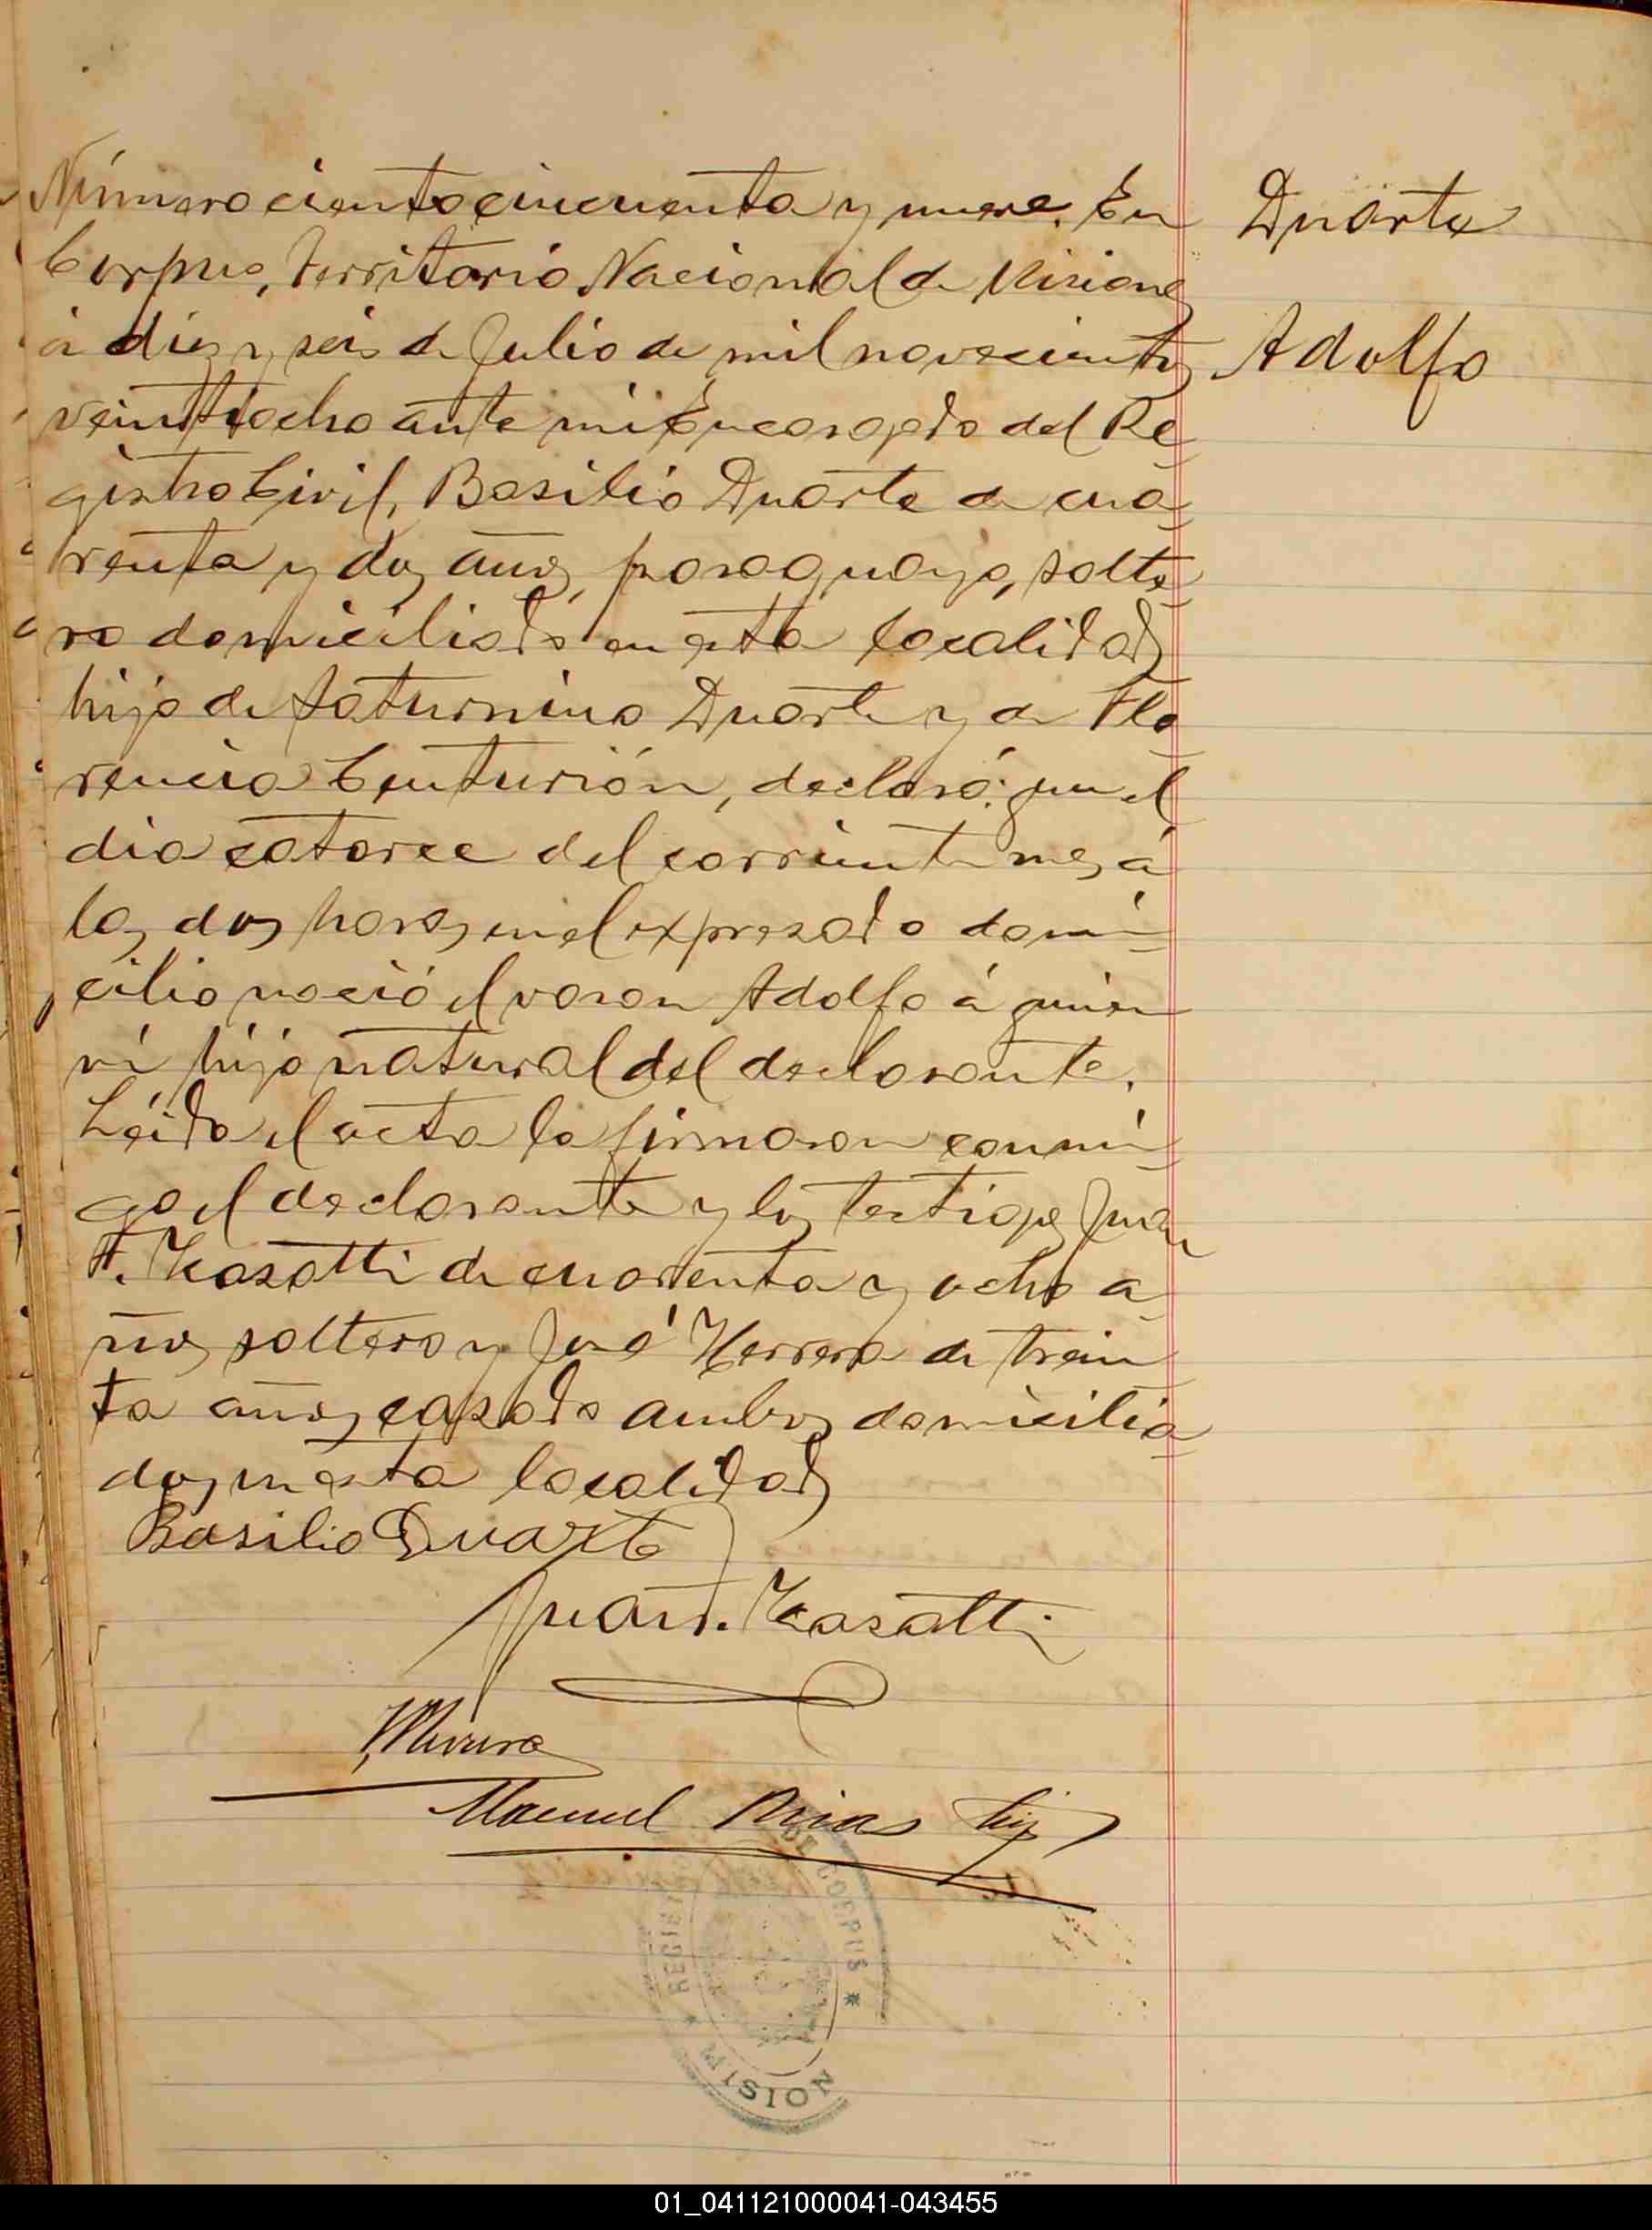 Número ciento cincuenta y nueve. En
Corpus, Territorio Nacional de Misiones
á diez y seis de Julio de mil novecientos
veintiocho ante mi Encargado del Re
gistro Civil, Basilio Duarte de cua
renta y dos años, paraguayo, solte
ro domiciliado en esta localidad
hijo de Saturnino Duarte y de Flo
rencia Centurión, declaró: que el
dia catorce del corriente mes á
las dos horas en el expresado domi
cilio nació el varon Adolfo á quien
ví hijo natural del declarante.
Leída el acta la firmaron conmi
go el declarante y los testigos Juan
F. Kasatti de cuarenta y ocho a
ños soltero y José Herrera de trein
ta años casado ambos domicilia
dos en esta localidad
Duarte
Adolfo
Basilio Duarte
Juan F. Kasatti
Manuel Rias hijo
DE CORPUS
MISION
01_041121000041-043455